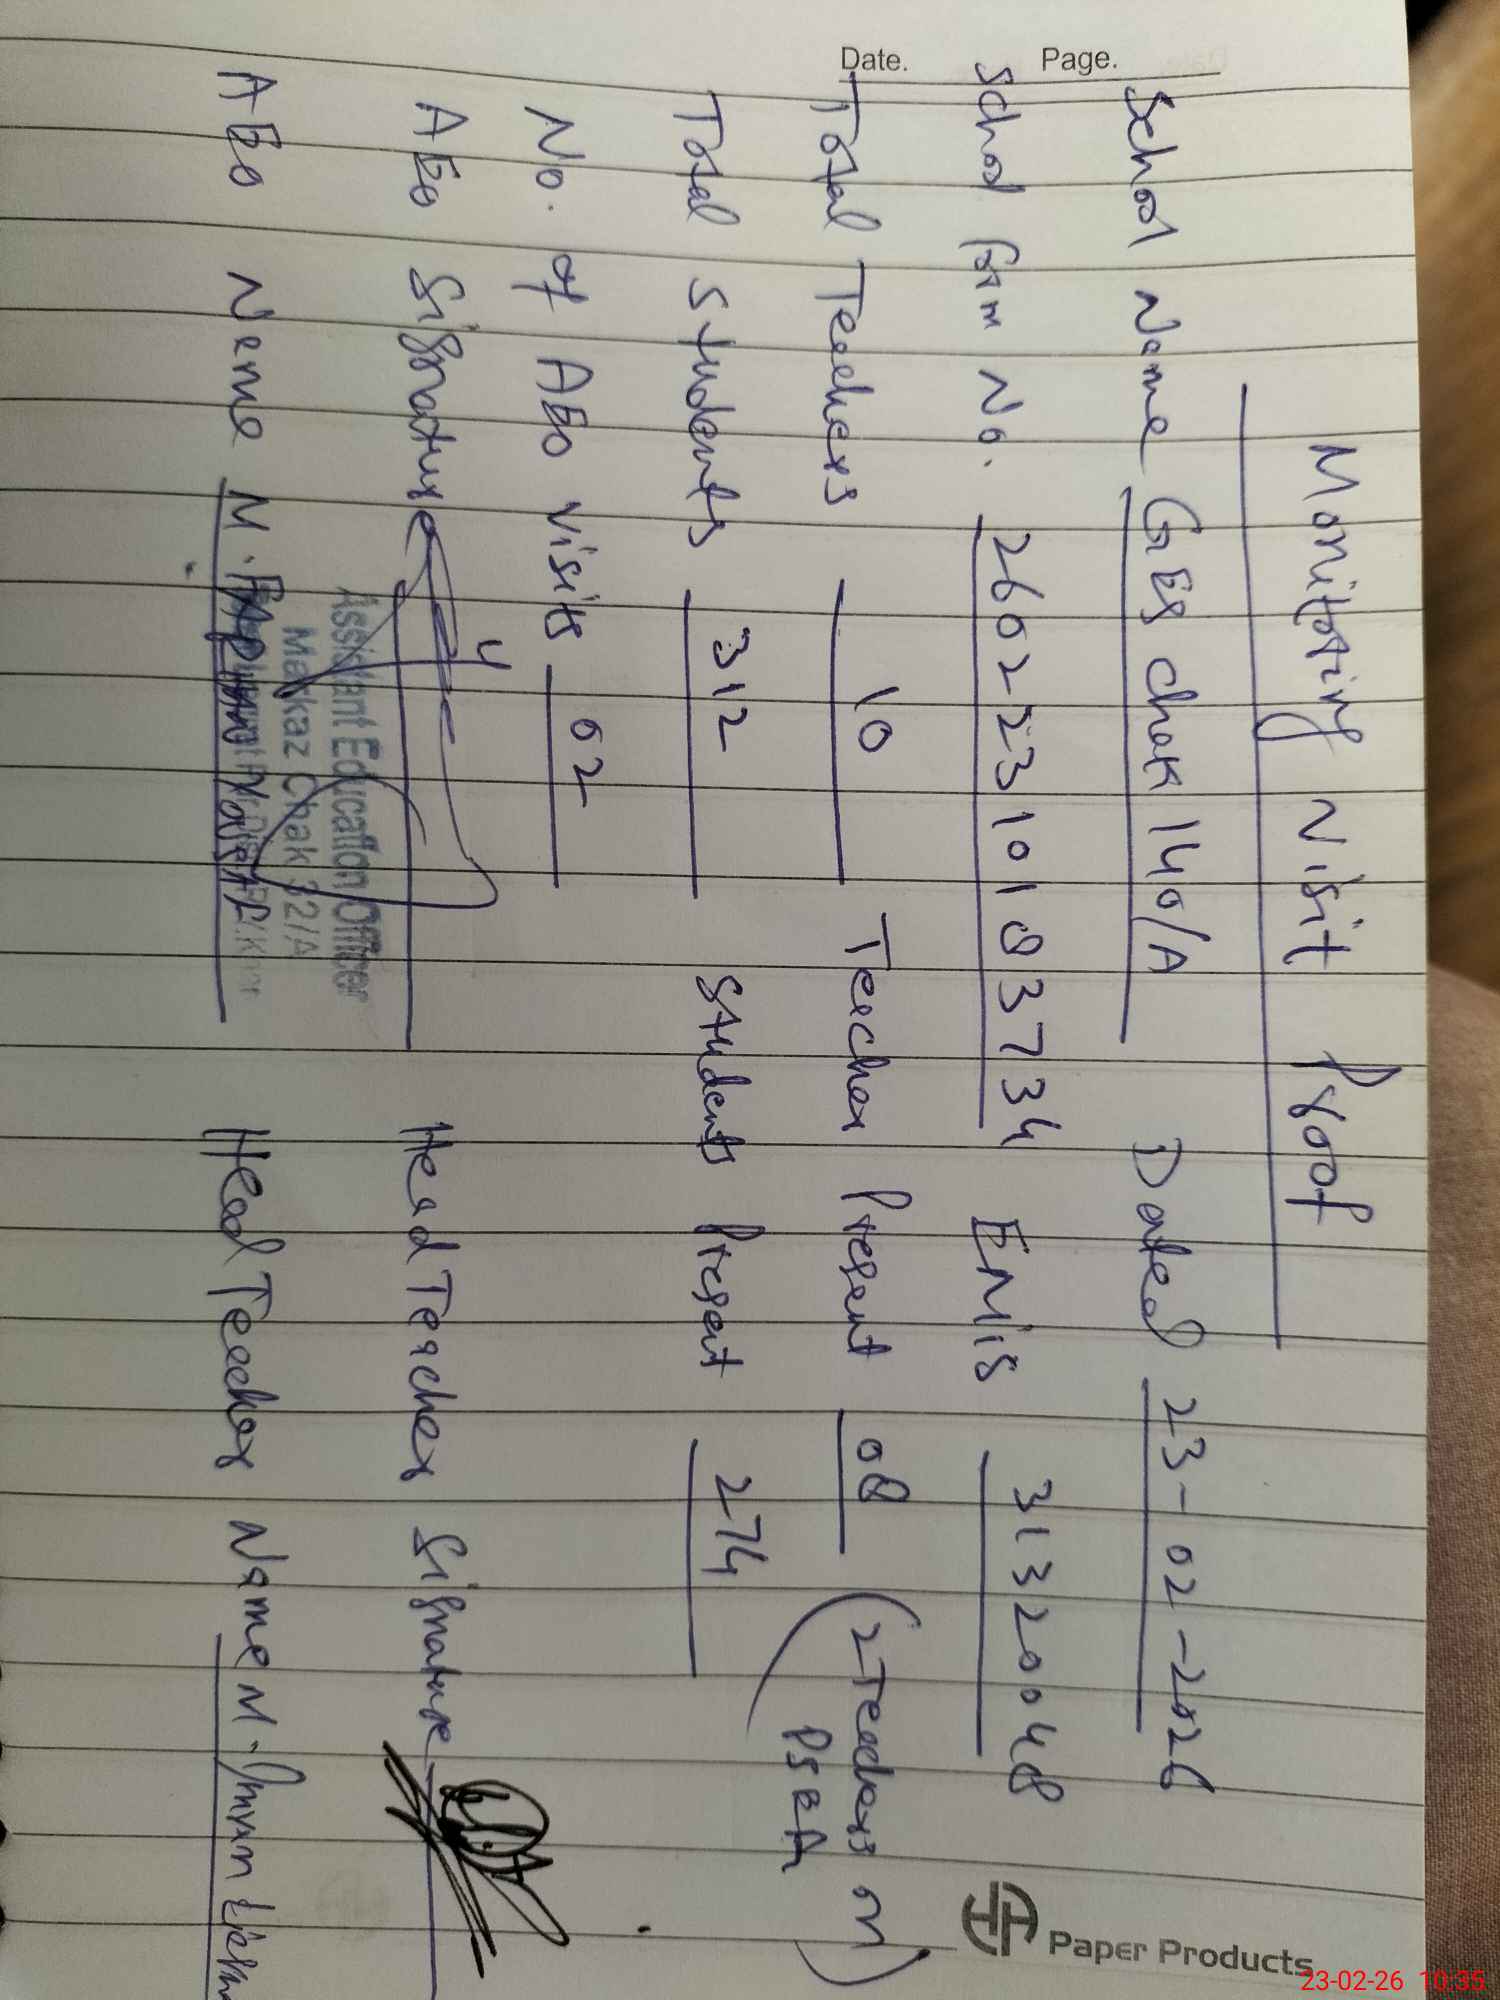 Date. Page.
Monitoring Visit Proof
School Name GES Chak 140/A Dated 23-02-2026
School Form No. 26022310183734 EMIS 31320048
Total Teachers 10 Teacher Present 08 (2 Teachers on
PSBA)
Total Students 312 Students Present 274
No. of AEO visits 02
AEO Signature Head Teacher Signature
Assistant Education Officer
Markaz Chak 32/A
AEO Name M. Head Teacher Name M. Imran
HA Paper Products
23-02-26 10:35